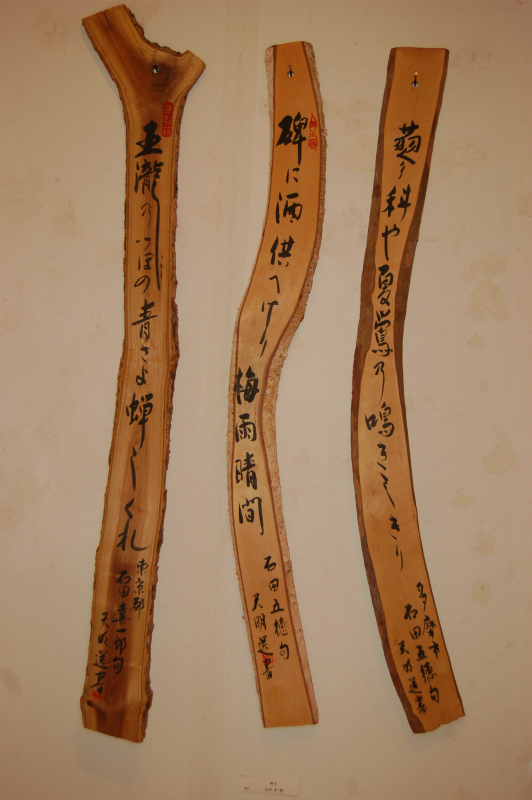 蓼科や夏鶯乃鳴きしきり
多摩市
石田五穂句
天明選書
碑に酒供へけり梅雨晴間
石田五穂句
天明選書
瀧乃つぼの青さよ蝉しぐれ
東京都
石田喜一郎句
天明選書